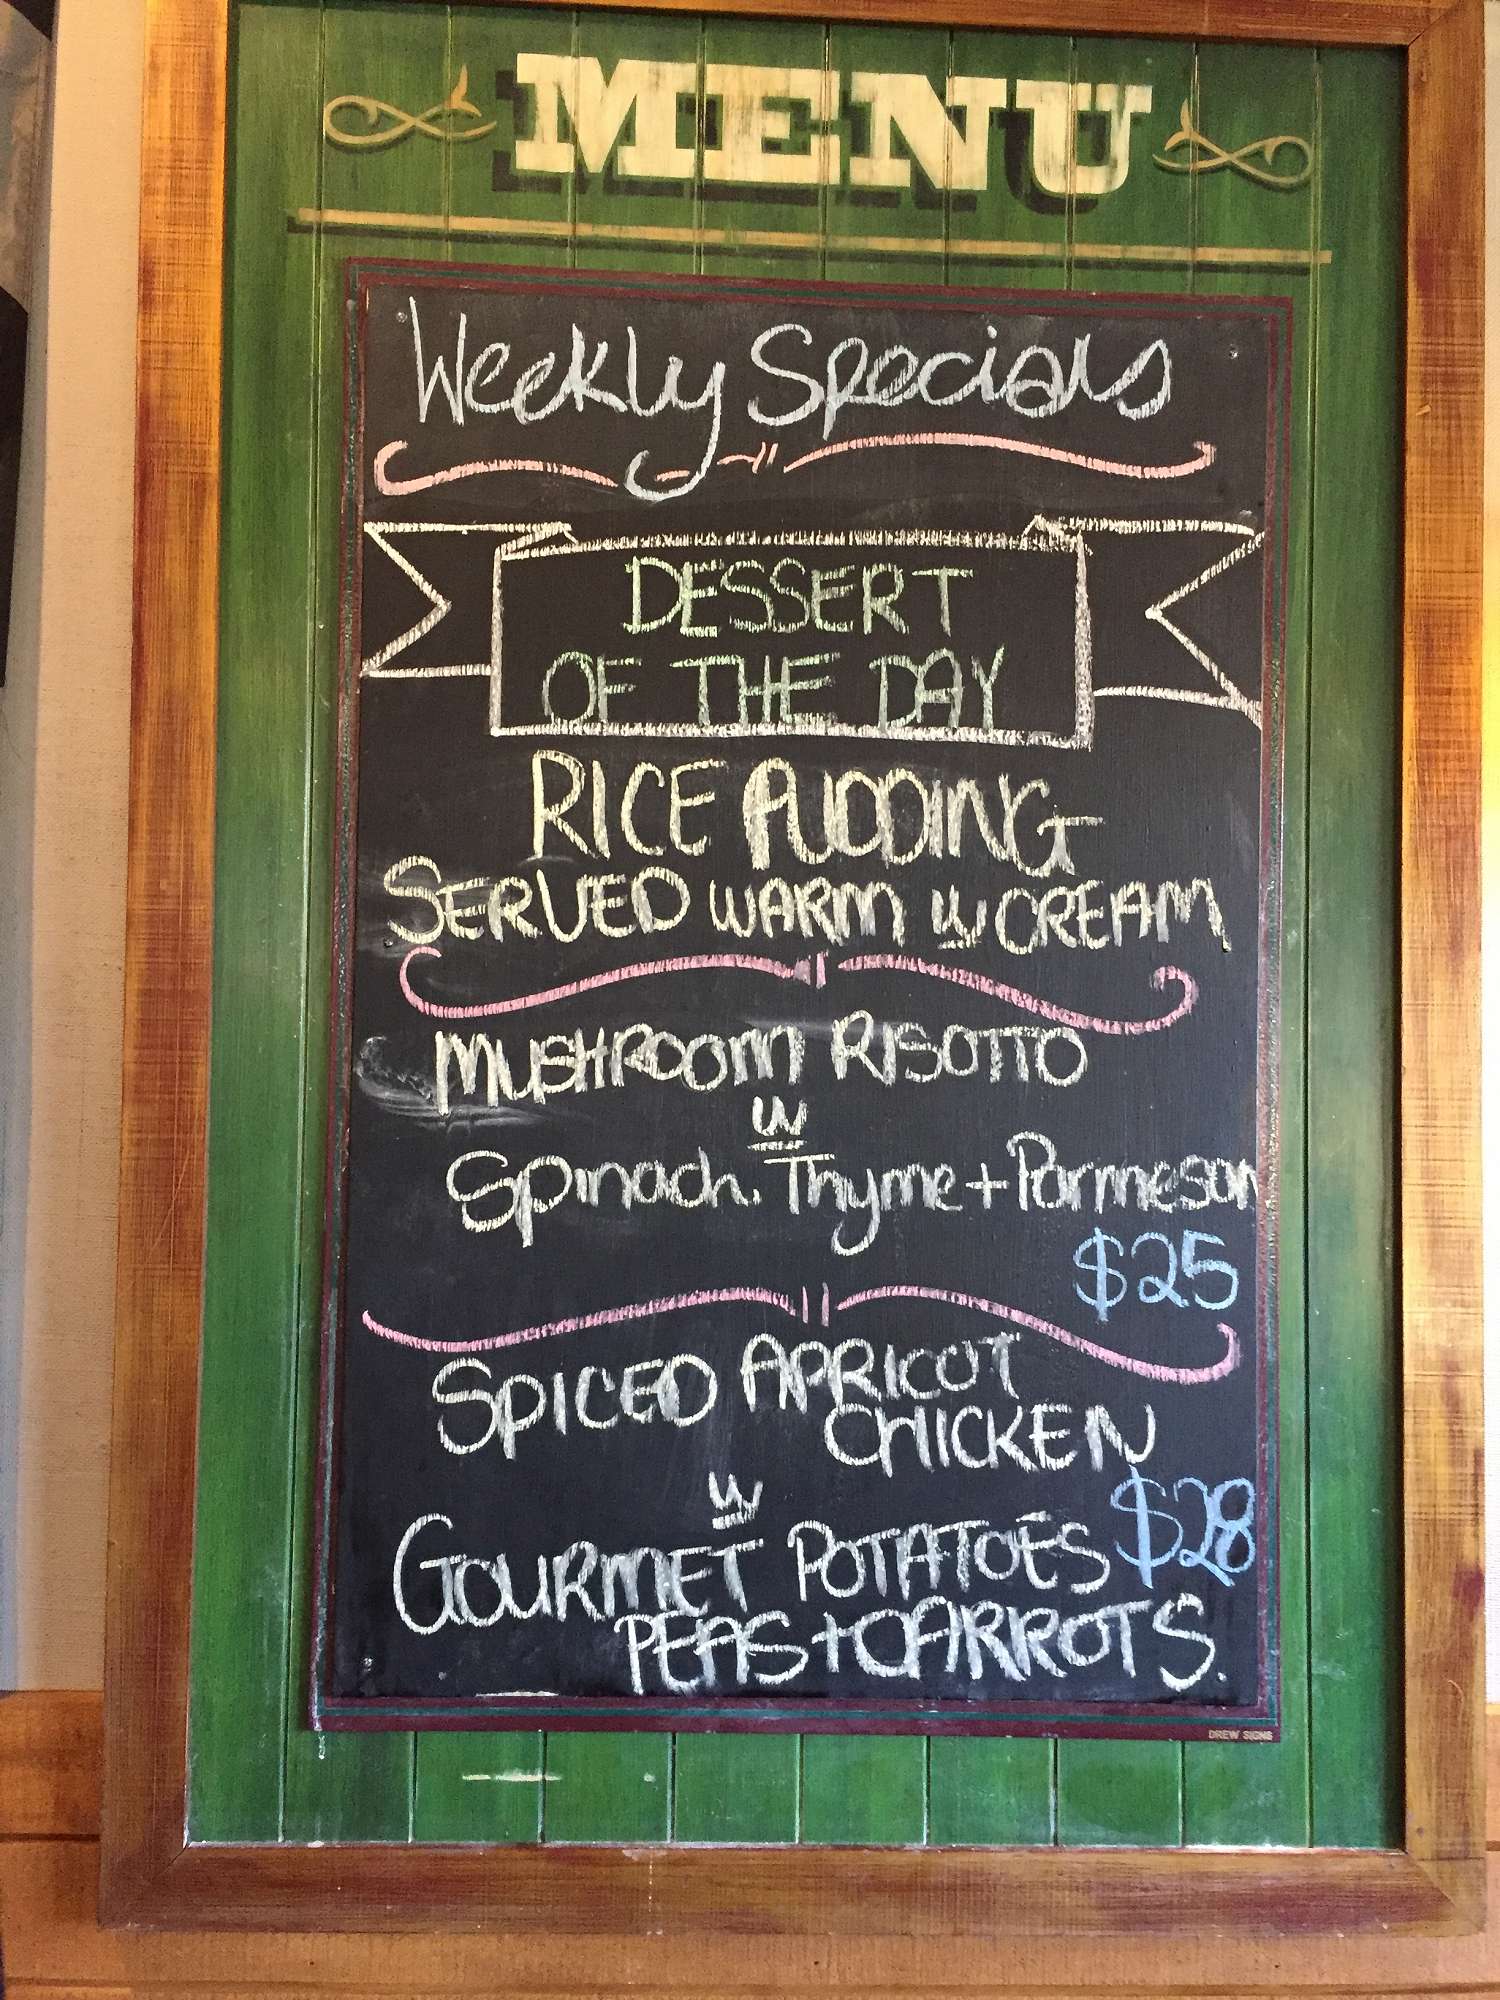 MENU
Weekly Specials
DESSERT
OF THE DAY
RICE PUDDING
SERVED WARM W CREAM
MUSHROOM RISOTTO
W
Spinach. Thyme + Parmesan
$25
SPICED APRICOT
CHICKEN
W
$28
GOURMET POTATOES
PEAS + CARROTS.
DREW SIGNS